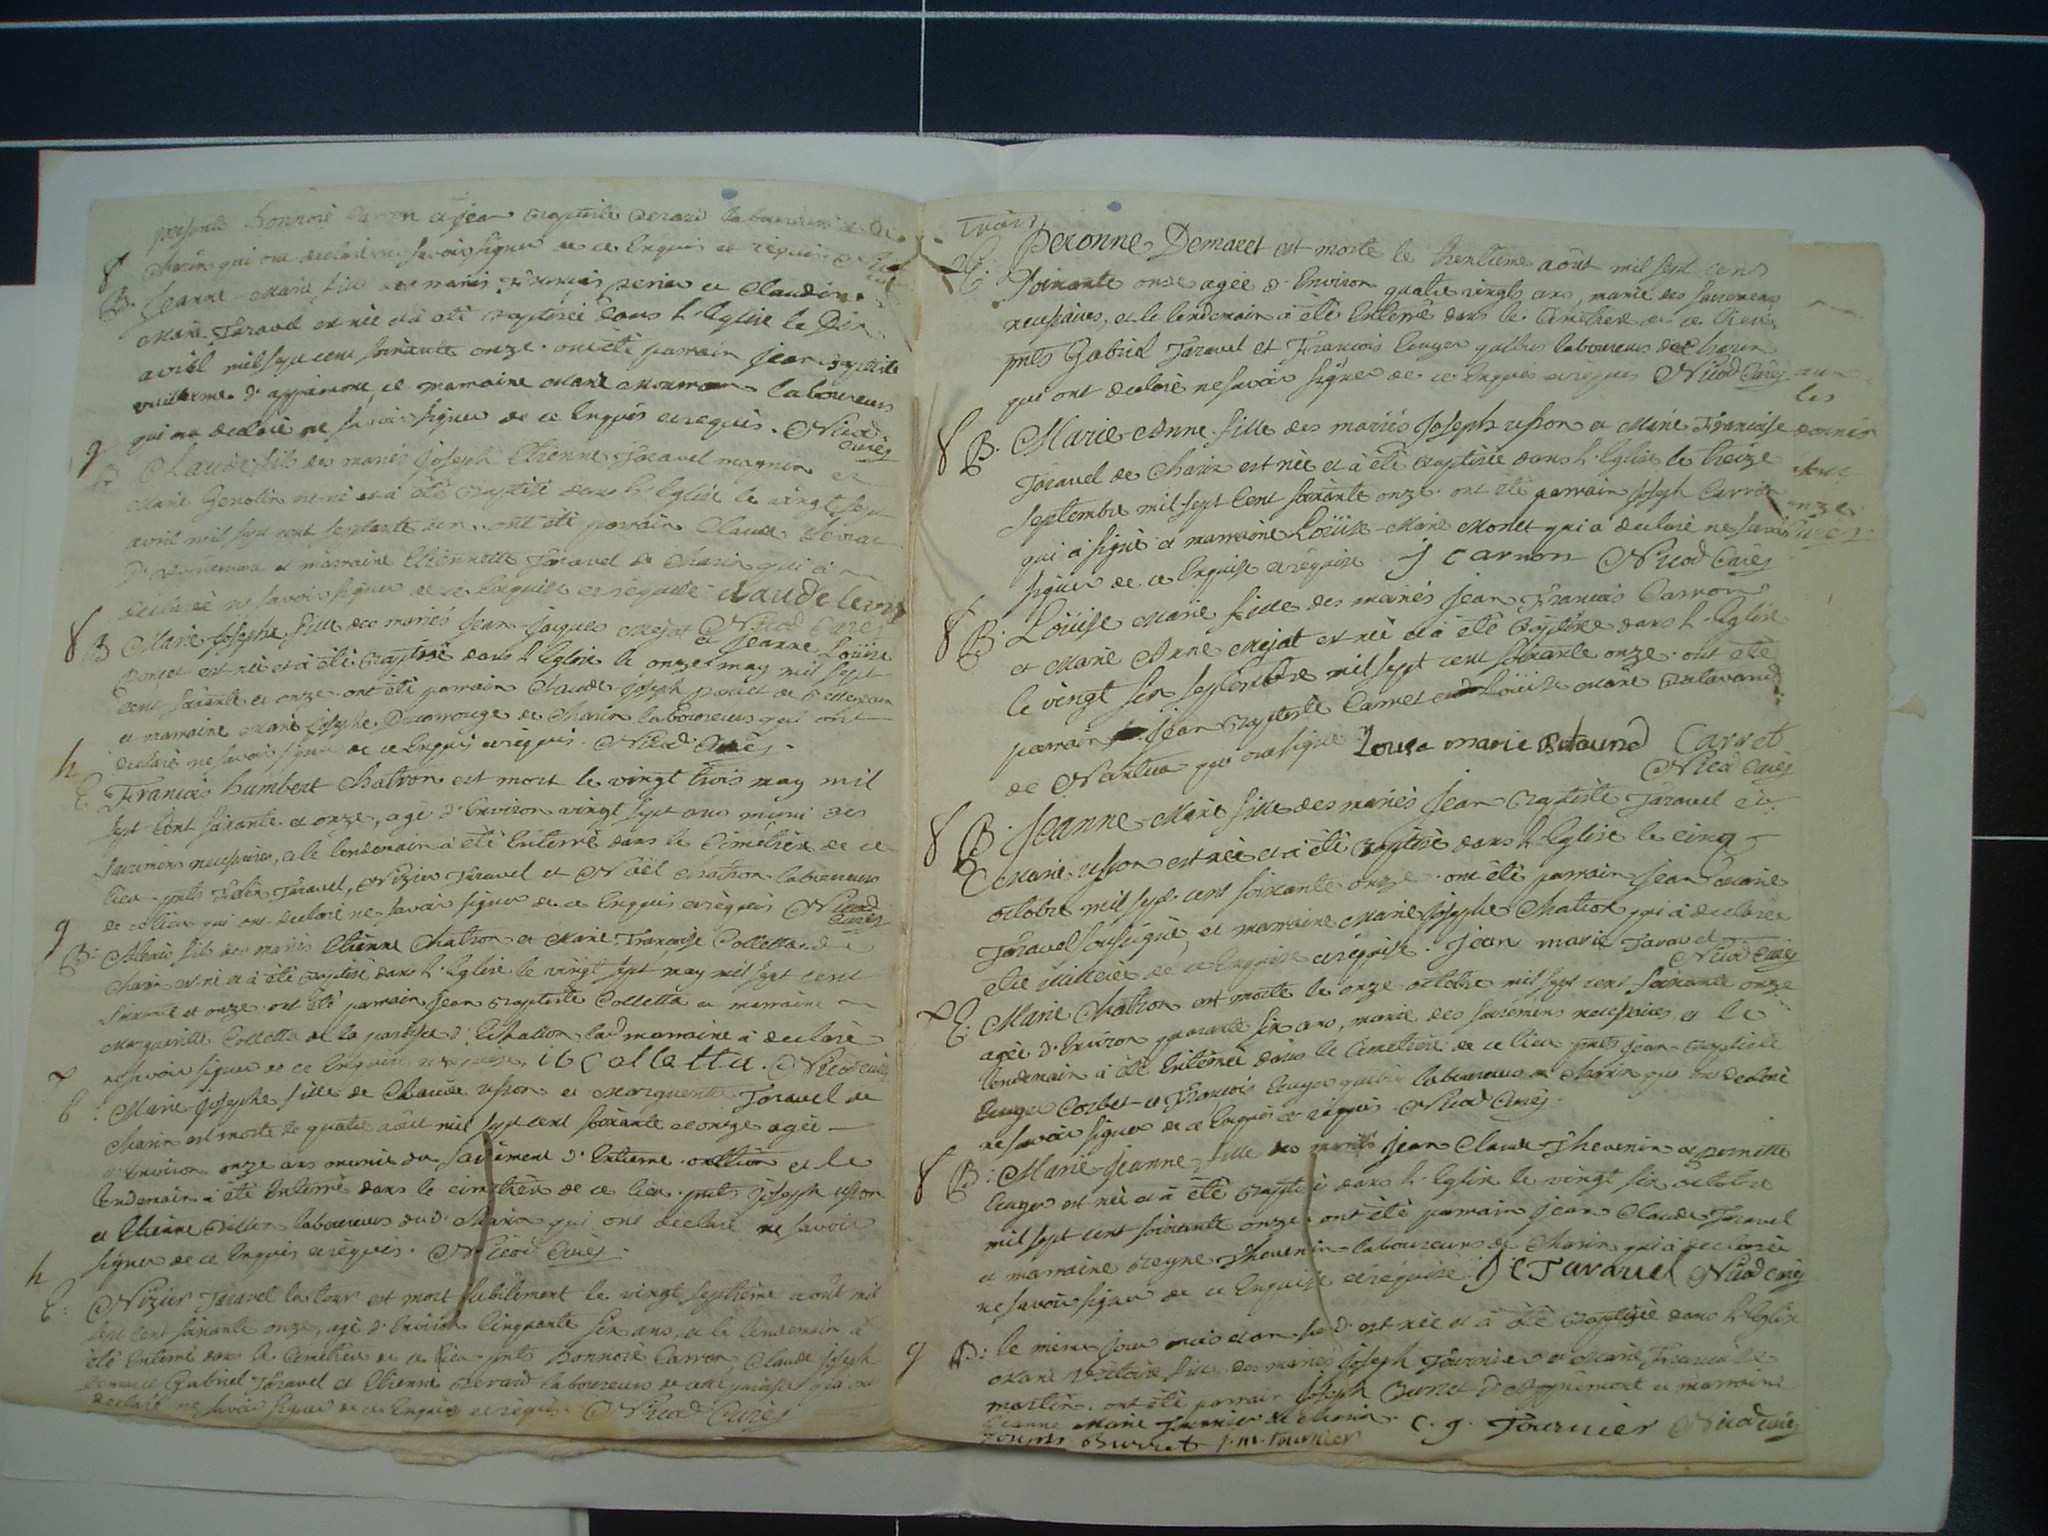 présents honnoré Carron et jean Baptiste Berard laboureurs de
Charix qui ont declaré ne savoir signer de ce Enquis et réquis Nicod
f
B. Jeanne-Marie fille des mariés François perier et Claudine
Marie Taravel est née et à été Baptisée dans l'Eglise le Dix
avril mil sept cent soixante onze. ont été parrain jean Baptiste
vuillerme d'appremont, et marraine Marie laboureurs
qui ont declaré ne savoir signer de ce Enquis et réquis. Nicod
Curés
g
B Claude fils des mariés joseph Etienne Taravel magnin et
Marie Genolin né et à été Baptisé dans l'Eglise le vingt sept
avril mil sept cent septante un. ont été parrain Claude
et marraine Etiennette Taravel de Charix qui à
declarée ne savoir signer de ce Enquise et réquise. claude
Nicod Curés
f
B Marie-josephe fille des mariés jean-jaques Mejat et jeanne Loüise
ponset est née et à été Baptisée dans l'Eglise le onze may mil sept
cent soixante et onze. ont été parrain Claude-joseph ponset de
et marraine Marie josephe Ducarrouge de Charix laboureurs qui ont
declaré ne savoir signer de ce Enquis et réquis. Nicod Curés.
h
E François humbert Chatron est mort le vingt trois may mil
sept Cent soixante et onze, agé d'Environ vingt sept ans muni des
sacremens necessaires, et le lendemain à été Enterré dans le Cimetière de ce
lieu. pnts Taravel, Nizier Taravel et Noël Chatron laboureurs
de ce lieu qui ont declaré ne savoir signer de ce Enquis et réquis Nicod
Curés
g
B: Alexis fils des mariés Etienne Chatron et Marie Françoise Colletta de
Charix est né et à été Baptisé dans l'Eglise le vingt sept may mil sept cent
soixante et onze. ont été parrain jean Baptiste Colletta et marraine
Margueritte Colletta de la paroisse d'Echallon lad marraine à declaré
ne savoir signer de ce Enquise et réquise. Colletta. Nicod curés
E: Marie-josephe fille de Claude usson et Marguerite Taravel de
Charix est morte le quatre août mil sept cent soixante et onze agée
d'Environ onze ans munie du sacrement d'Extreme-onction et le
lendemain à été Enterré dans le cimetière de ce lieu. pnts joseph usson
et Etienne laboureurs dud. Charix qui ont declaré ne savoir
signer de ce Enquis et réquis. Nicod Curés.
h
E: Nizier Taravel latour est mort subitement le vingt septième août mil
sept cent soixante onze, agé d'Environ Cinquante six ans, et le lendemain à
été Enterré dans le Cimetière de ce lieu pnts honnoré Carron, Claude joseph
Gabriel Taravel et Etienne Berard laboureurs de cette paroisse qui ont
declaré ne savoir signer de ce Enquis et réquis. Nicod Curés
Trois
E. Peronne Demaret est morte le trentième août mil sept cens
soixante onze agée d'Environ quatre vingts ans, munie des sacremens
necessaires, et le lendemain à été Enterré dans le Cimetière de ce lieu.
pnts Gabriel Taravel et François laboureurs de Charix
qui ont declaré ne savoir signer de ce Enquis et réquis Nicod Curés
f
B. Marie-Anne fille des mariés joseph usson et Marie Françoise
Taravel de Charix est née et à été Baptisée dans l'Eglise le treize
septembre mil sept Cent soixante onze. ont été parrain joseph Carron
qui à signé et marraine Loüise-Marie Monet qui a declaré ne savoir
signer de ce Enquise et réquise j carron Nicod Curés
f
B. Loüise Marie fille des mariés jean François Carron
et Marie Anne Mejat est née et à été Baptisée dans l'Eglise
le vingt six septembre mil sept cent soixante onze. ont été
parrain jean Baptiste Carret et Loüise Marie
de Nantua qui ont signé Louise marie Carret
Nicod Curés
f
B. Jeanne-Marie fille des mariés jean Baptiste Taravel et
Marie usson est née et à été Baptisée dans l'Eglise le cinq
octobre mil sept cent soixante onze. ont été parrain jean Marie
Taravel soussigné, et marraine Marie josephe Chatron qui à declarée
être illiterée de ce Enquise et réquise. jean marie Taravel
Nicod Curés
E. Marie Chatron est morte le onze octobre mil sept cent soixante onze
agée d'Environ quarante six ans, munie des sacremens necessaires, et le
lendemain à été Enterrée dans le Cimetière de ce lieu pnts jean Baptiste
Corbet et François laboureurs de Charix qui ont declaré
ne savoir signer de ce Enquis et réquis. Nicod Curés.
f
B: Marie-jeanne fille des mariés jean Claude Thevenin et pernette
est née et à été Baptisée dans l'Eglise le vingt six octobre
mil sept cent soixante onze ont été parrain jean Claude Taravel
et marraine Reyne Thevenin laboureurs de Charix qui à declarée
ne savoir signer de ce Enquise et réquise. J C Taravel Nicod curés
g
B: le même jour mois et an sus d. est née et à été Baptisée dans l'Eglise
Marie Victoire fille des mariés joseph Fournier et Marie Françoise
martin. ont été parrain joseph Burlet d'Appremont et marraine
jeanne Marie Fournier de Charix. C. g. Fournier Nicod curés
joseph Burlet j. m. fournier
les
onze.
Curés.